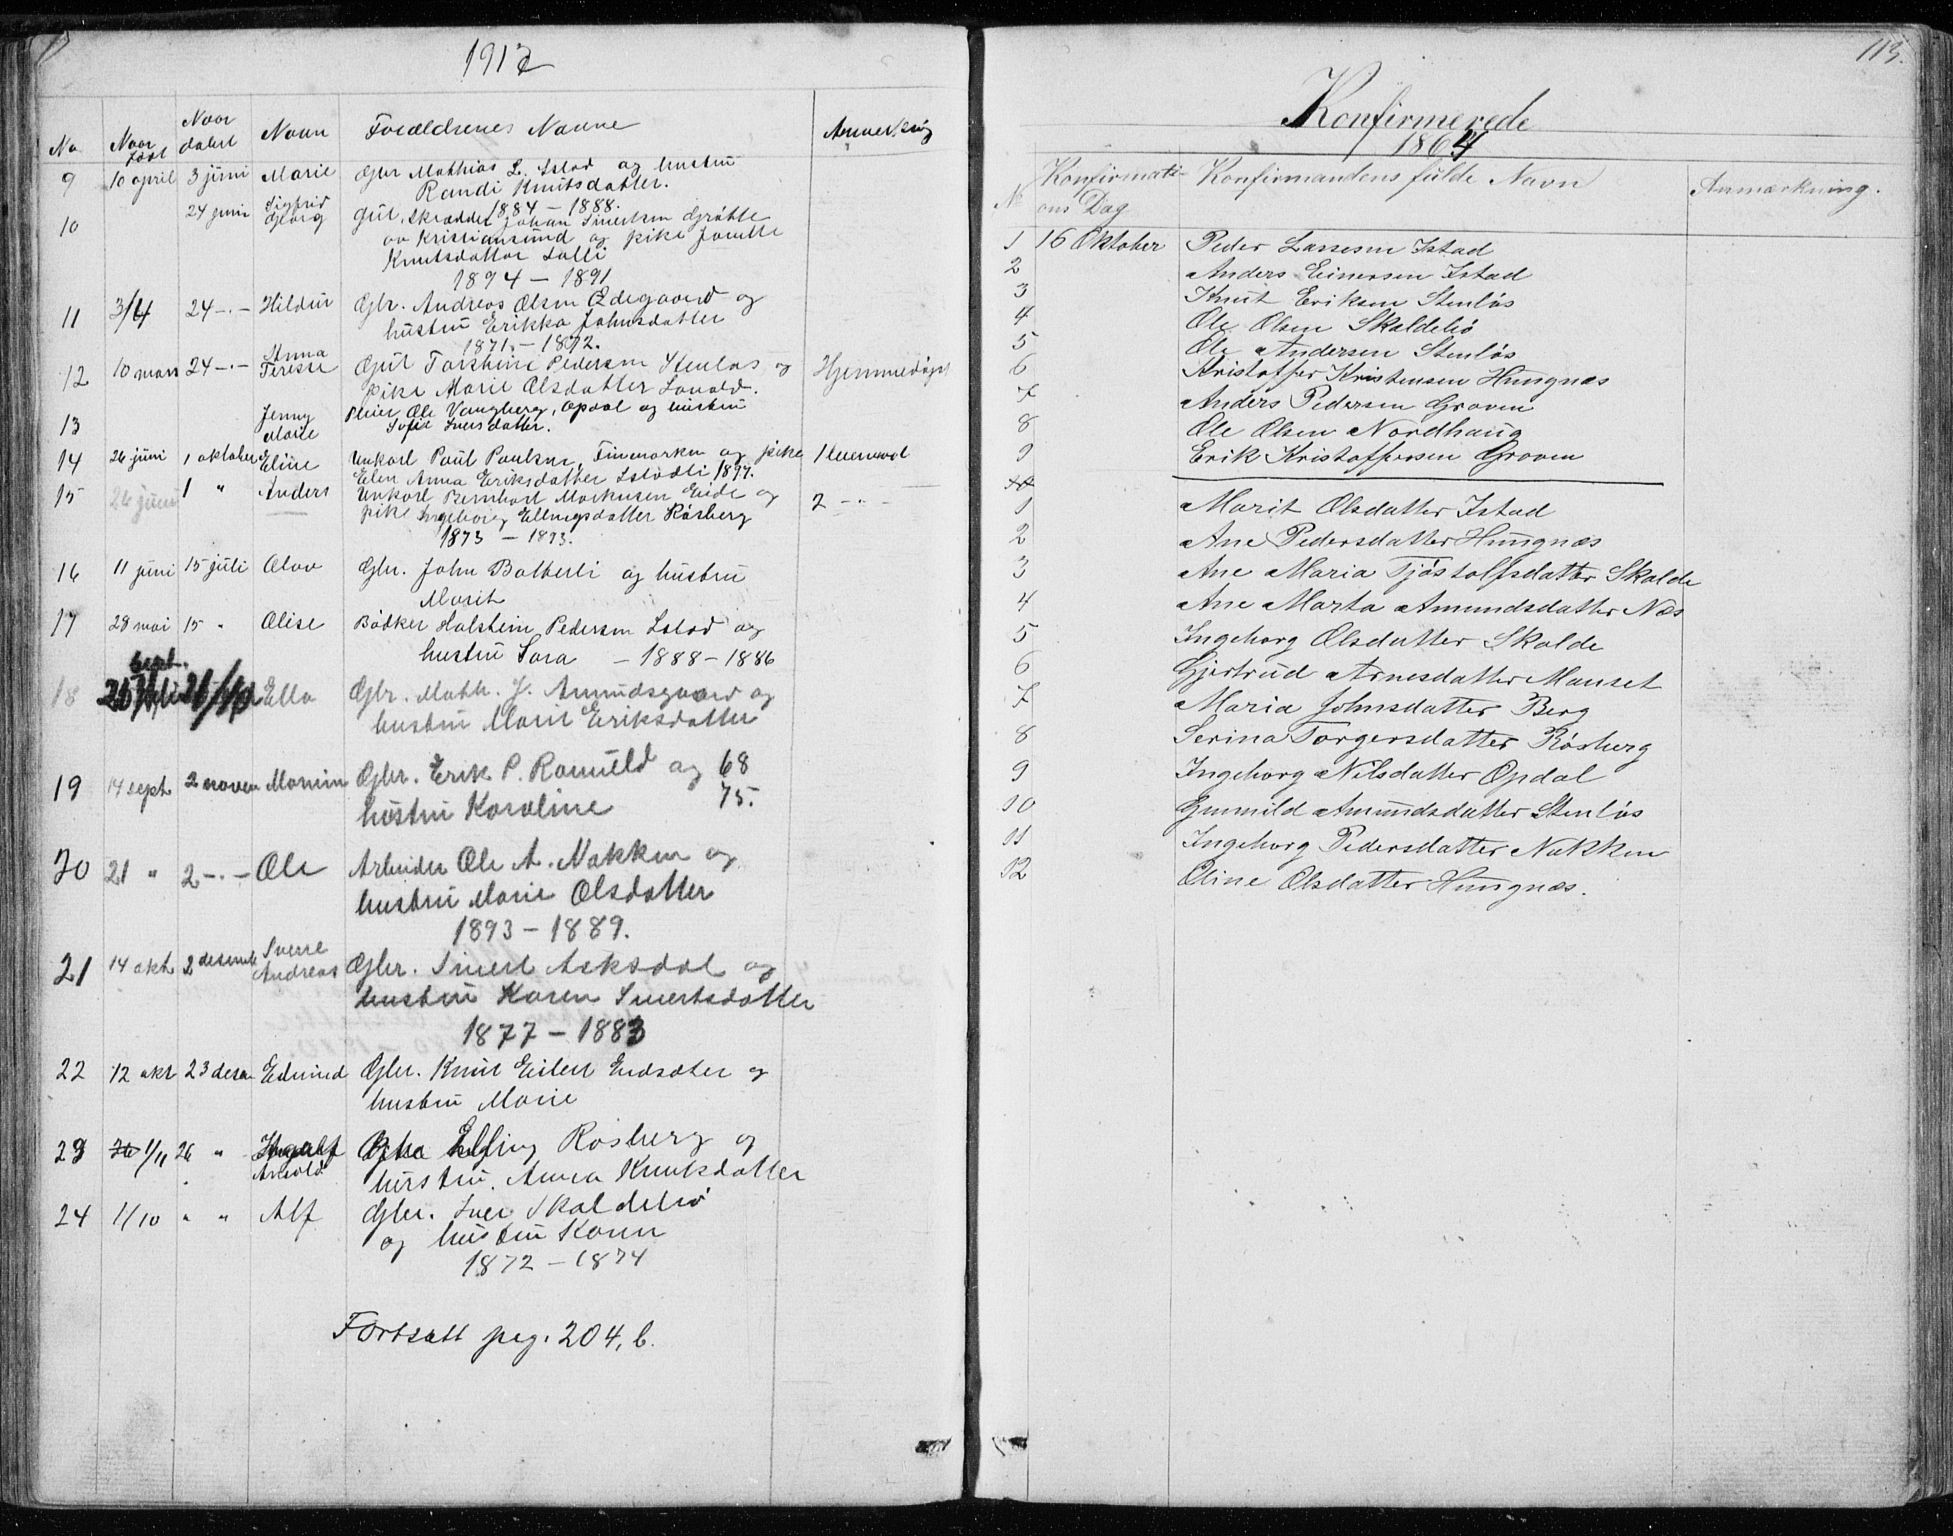 1917
No
Naar født
Naar døbt
Navn
Forældrenes Navne
Anmerkning
9 10 april 3 juni Marie Gbr Mathias L. Istad og hustru
Randi Knutsdatter.
1884 – 1888.
10 24 juni Sigfrid Georg Gut, skrædder Johan Sivertsen
av Kristiansund og pike
Knutsdatter
1894 – 1891
11 3/4 24 –·– Hildur Gbr. Andreas Olsen Ødegaard og
hustru Erikka Johnsdatter
1871. – 1872.
12 10 mars 24 –·– Anna Terese Gut Torstein Pedersen Stenløs og Hjemmedøpt
pike Marie Olsdatter
13 Jenny Marie Ole Vangberg, Opdal og hustru
Sofie Iversdatter.
14 26 juni 1 oktober Eline Unkarl Paul Paulsen, Finmarken og pike 1
Elen Anna Eriksdatter 1897.
15 26 juni 1 " Anders Unkarl Bernhart Markusen Eide og 2 –·–
pike Ingeborg Ellingsdatter Røsberg
1873 – 1893.
16 11 juni 15 juli Olav Gbr. John Bolberli og hustru
Marit
17 28 mai 15 " Olise Bødker Halstein Pedersen Istad og
hustru Sara – 1888 – 1886
sept.
18 Ella Gbr. Math. J. Amundsgaard og
hustru Marit Eriksdatter
19 14 sept. 2 novem Gbr. Erik P. Romuld og 68
hustru Karoline 75.
20 21 " 2 –·– Ole Arbeider Ole A. Nakken og
hustru Marie Olsdatter
1893 – 1889.
21 14 okt 2 desemb Sverre Andreas Gbr. Sivert Aksdal og
hustru Karen Sivertsdatter
1877 – 1883
22 12 okt 23 dese Edmund Gbr. Knut Eilert Eidsæter og
hustru Marie
23 1/11 26 " Arnold Elling Røsberg og
hustru. Anna Knutsdatter
24 1/10 " " Alf Gbr. Iver Skaldebø
og hustru Karen
1872 – 1874
Fortsatt pag. 204, b.
113.
Konfirmerede
1864
No
Konfirmati-
ons Dag
Konfirmandens fulde Navn
Anmærkning.
1 16 Oktober Peder Lassesen Istad
2 Anders Einersen Istad
3 Knut Eriksen Stenløs
4 Ole Olsen Skaldebø
5 Ole Andersen Stenløs
6 Kristoffer Kristensen Hungnæs
7 Anders Pedersen Groven
8 Ole Olsen Nordhaug
9 Erik Kristoffersen Groven
10
1 Marit Olsdatter Istad
2 Ane Pedersdatter Hungnæs
3 Ane Maria Tjøstolfsdatter Skalde
4 Ane Marta Amundsdatter Næs
5 Ingeborg Olsdatter Skalde
6 Gjertrud Arnesdatter Manset
7 Maria Johnsdatter Berg
8 Serina Torgersdatter Røsberg
9 Ingeborg Nilsdatter Opdal
10 Gunnild Amundsdatter Stenløs
11 Ingeborg Pedersdatter Nakken
12 Oline Olsdatter Hungnæs.